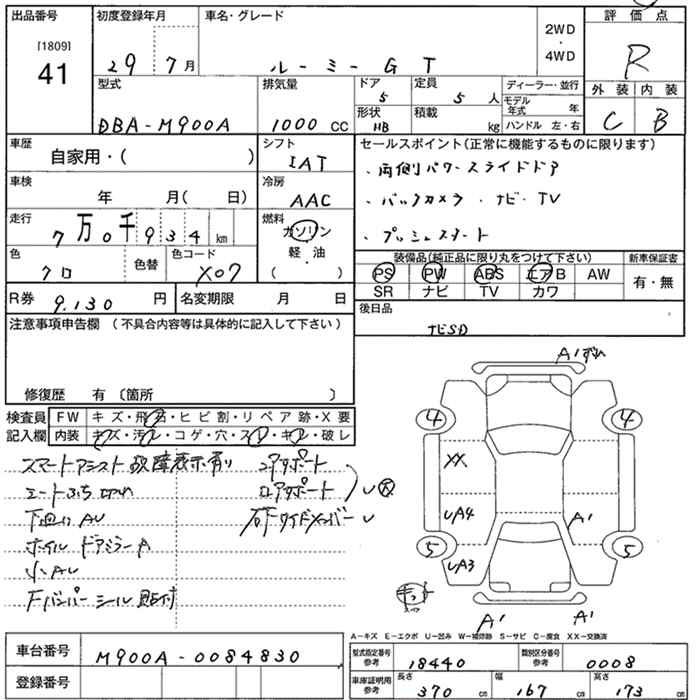 出品番号 初度登録年月 車名・グレード 2WD・4WD 評価点
[1809]
41
29 7月 ルーミー GT R
型式 排気量 ドア 5 定員 5人 ディーラー・並行 外装 内装
DBA-M900A 1000cc 形状 HB 積載 kg モデル年式 年 ハンドル 左・右 C B
車歴 シフト セールスポイント(正常に機能するものに限ります)
自家用・( ) IAT ・両側パワースライドドア
車検 冷房
年 月( 日) AAC ・バックカメラ・ナビ・TV
走行 燃料
7万0千934km ガソリン ・プッシュスタート
軽・油
・
( )
色 色替 色コード 装備品(純正品に限り丸をつけて下さい) 新車保証書
クロ X07 PS PW ABS エアB AW 有・無
R券 9,130円 名変期限 月 日 SR ナビ TV カワ
注意事項申告欄(不具合内容等は具体的に記入して下さい) 後日品
ナビSD
修復歴 有〔箇所 〕
検査員 FW キズ・飛石・ヒビ割・リペア跡・X要
記入欄 内装 キズ・汚レ・コゲ・穴・スレ・キレ・破レ
スマートアシスト故障表示有り
シートふち切れ
下回りAU
ホイルドアミラーA
小AU
Fバンパーシール貼付
コアサポート
A'ずれ
4 4
XX
UA4 A'
5 5
UA3
A' A'
A-キズ E-エクボ U-凹み W-補修跡 S-サビ C-腐食 XX-交換済
車台番号 M900A-0084830 型式指定番号 参考 18440 類別区分番号 参考 0008
登録番号 車庫証明用 参考 長さ 370cm 幅 167cm 高さ 173cm